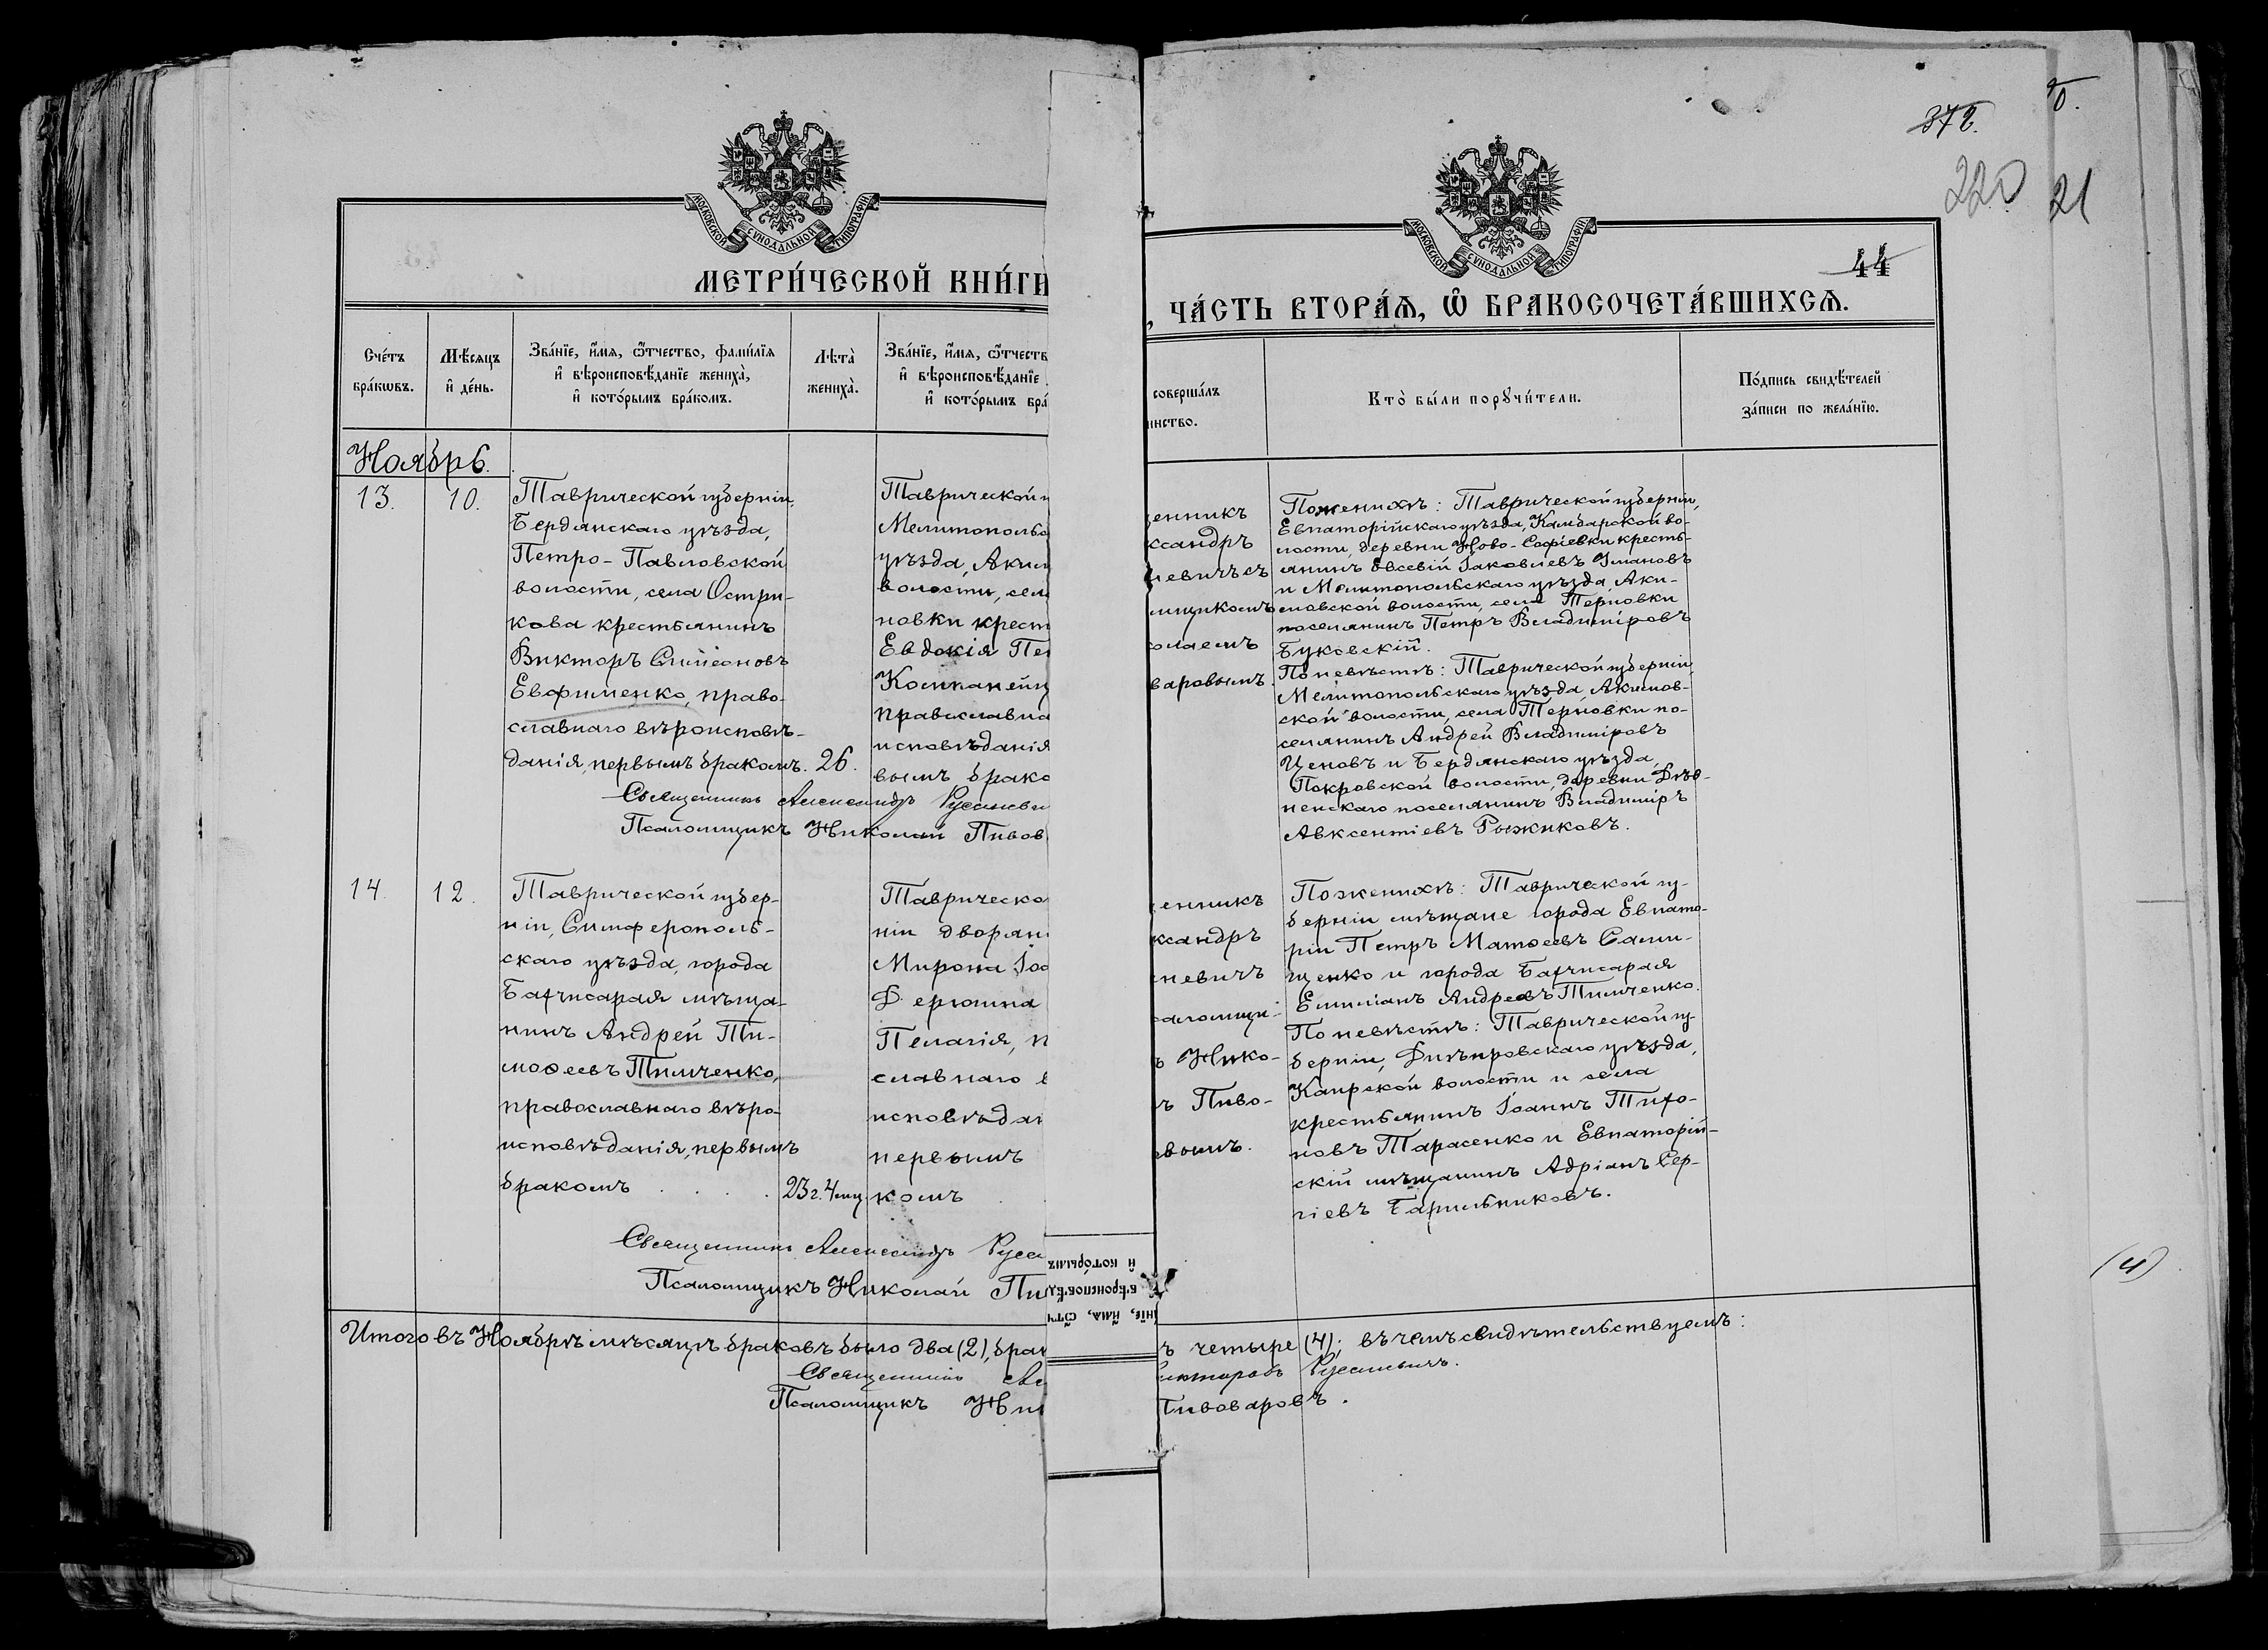 б.
372.
220
21
44
МОСКОВСКОЙ СѴНОДАЛЬНОЙ ТИПОГРАФІИ
МОСКОВСКОЙ СѴНОДАЛЬНОЙ ТИПОГРАФІИ
МЕТРИ́ЧЕСКОЙ КНИ́ГИ
, ЧА́СТЬ ВТОРА́Ѧ, Ѡ БРАКОСОЧЕТА́ВШИХСѦ.
Сче́тъ
бра́кѡвъ.
Мѣ́сяцъ
и҆ де́нь.
Зва́нїе, и҆́мя, ѻ҆́тчество, фами́лїя
и҆ вѣроисповѣ́данїе жениха̀,
и҆ кото́рымъ бра́комъ.
Лѣта̀
жениха̀.
Зва́нїе, и҆́мя, ѻ҆́тчеств
и҆ вѣроисповѣ́данїе
и҆ кото́рымъ бра́
соверша́лъ
инство.
Кто̀ бы́ли порꙋчи́тели.
По́дпись свидѣ́телей
за́писи по жела́нїю.
Ноябрь.
13.
10.
Таврической губерніи,
Бердянскаго уѣзда,
Петро-Павловской
волости, села Остри-
кова крестьянинъ
Викторъ Симеоновъ
Евфименко, право-
славнаго вѣроисповѣ-
данія, первымъ бракомъ.
26.
Таврической г
Мелитопольс
уѣзда, Аким
волости, сел
новки крест
Евдокія Пе
Компанейц
православна
исповѣданія
вымъ брако
Священникъ Александръ Русаневи
Псаломщикъ Николай Пивов
щенникъ
ксандръ
невичъ съ
мщикомъ
колаемъ
варовымъ.
По женихѣ: Таврической губерніи,
Евпаторійскаго уѣзда, Камбарской во-
лости, деревни Ново-Софіевки кресть-
янинъ Евсевій Іаковлевъ Умановъ
и Мелитопольскаго уѣзда, Аки-
мовской волости, села Терновки
поселянинъ Петръ Владиміровъ
Буковскій.
По невѣстѣ: Таврической губерніи,
Мелитопольскаго уѣзда Акимов-
ской волости, села Терновки по-
селянинъ Андрей Владиміровъ
Ценовъ и Бердянскаго уѣзда,
Покровской волости, деревни
поселянинъ Владиміръ
Авксентіевъ Рыжиковъ.
14.
12.
Таврической губер-
ніи, Симферополь-
скаго уѣзда, города
Бахчисарая мѣща-
нинъ Андрей Ти-
моѳеевъ Тимченко,
православнаго вѣро-
исповѣданія, первымъ
бракомъ . . . .
23 г. 4 мц.
Таврическо
ніи дворян
Мирона Іоа
Дерюгина
Пелагія, п
славнаго в
исповѣдан
первымъ
комъ .
Священникъ Александръ Руса
Псаломщикъ Николай Пи
щенникъ
ксандръ
невичъ
саломщи-
ъ Нико-
ъ Пиво-
овымъ.
По женихѣ: Таврической гу-
берніи мѣщане города Евпато-
ріи Петръ Матѳеевъ
и города Бахчисарая
Емиліанъ Андреевъ Тимченко.
По невѣстѣ: Таврической гу-
берніи, Днѣпровскаго уѣзда,
Каирской волости и села
крестьянинъ Іоаннъ Тихо-
новъ Тарасенко и Евпаторій-
скій мѣщанинъ Адріанъ Сер-
гіевъ
и҆ кото́рымъ
вѣроисповѣ́д
нїе, и҆́мя, ѻ҆́тч
(4)
Итого въ Ноябрѣ мѣсяцѣ браковъ было два (2), брач
ъ четыре (4); въ чемъ свидѣтельствуемъ:
Священникъ Але
Русаневичъ.
Псаломщикъ Ни
Пивоваровъ.